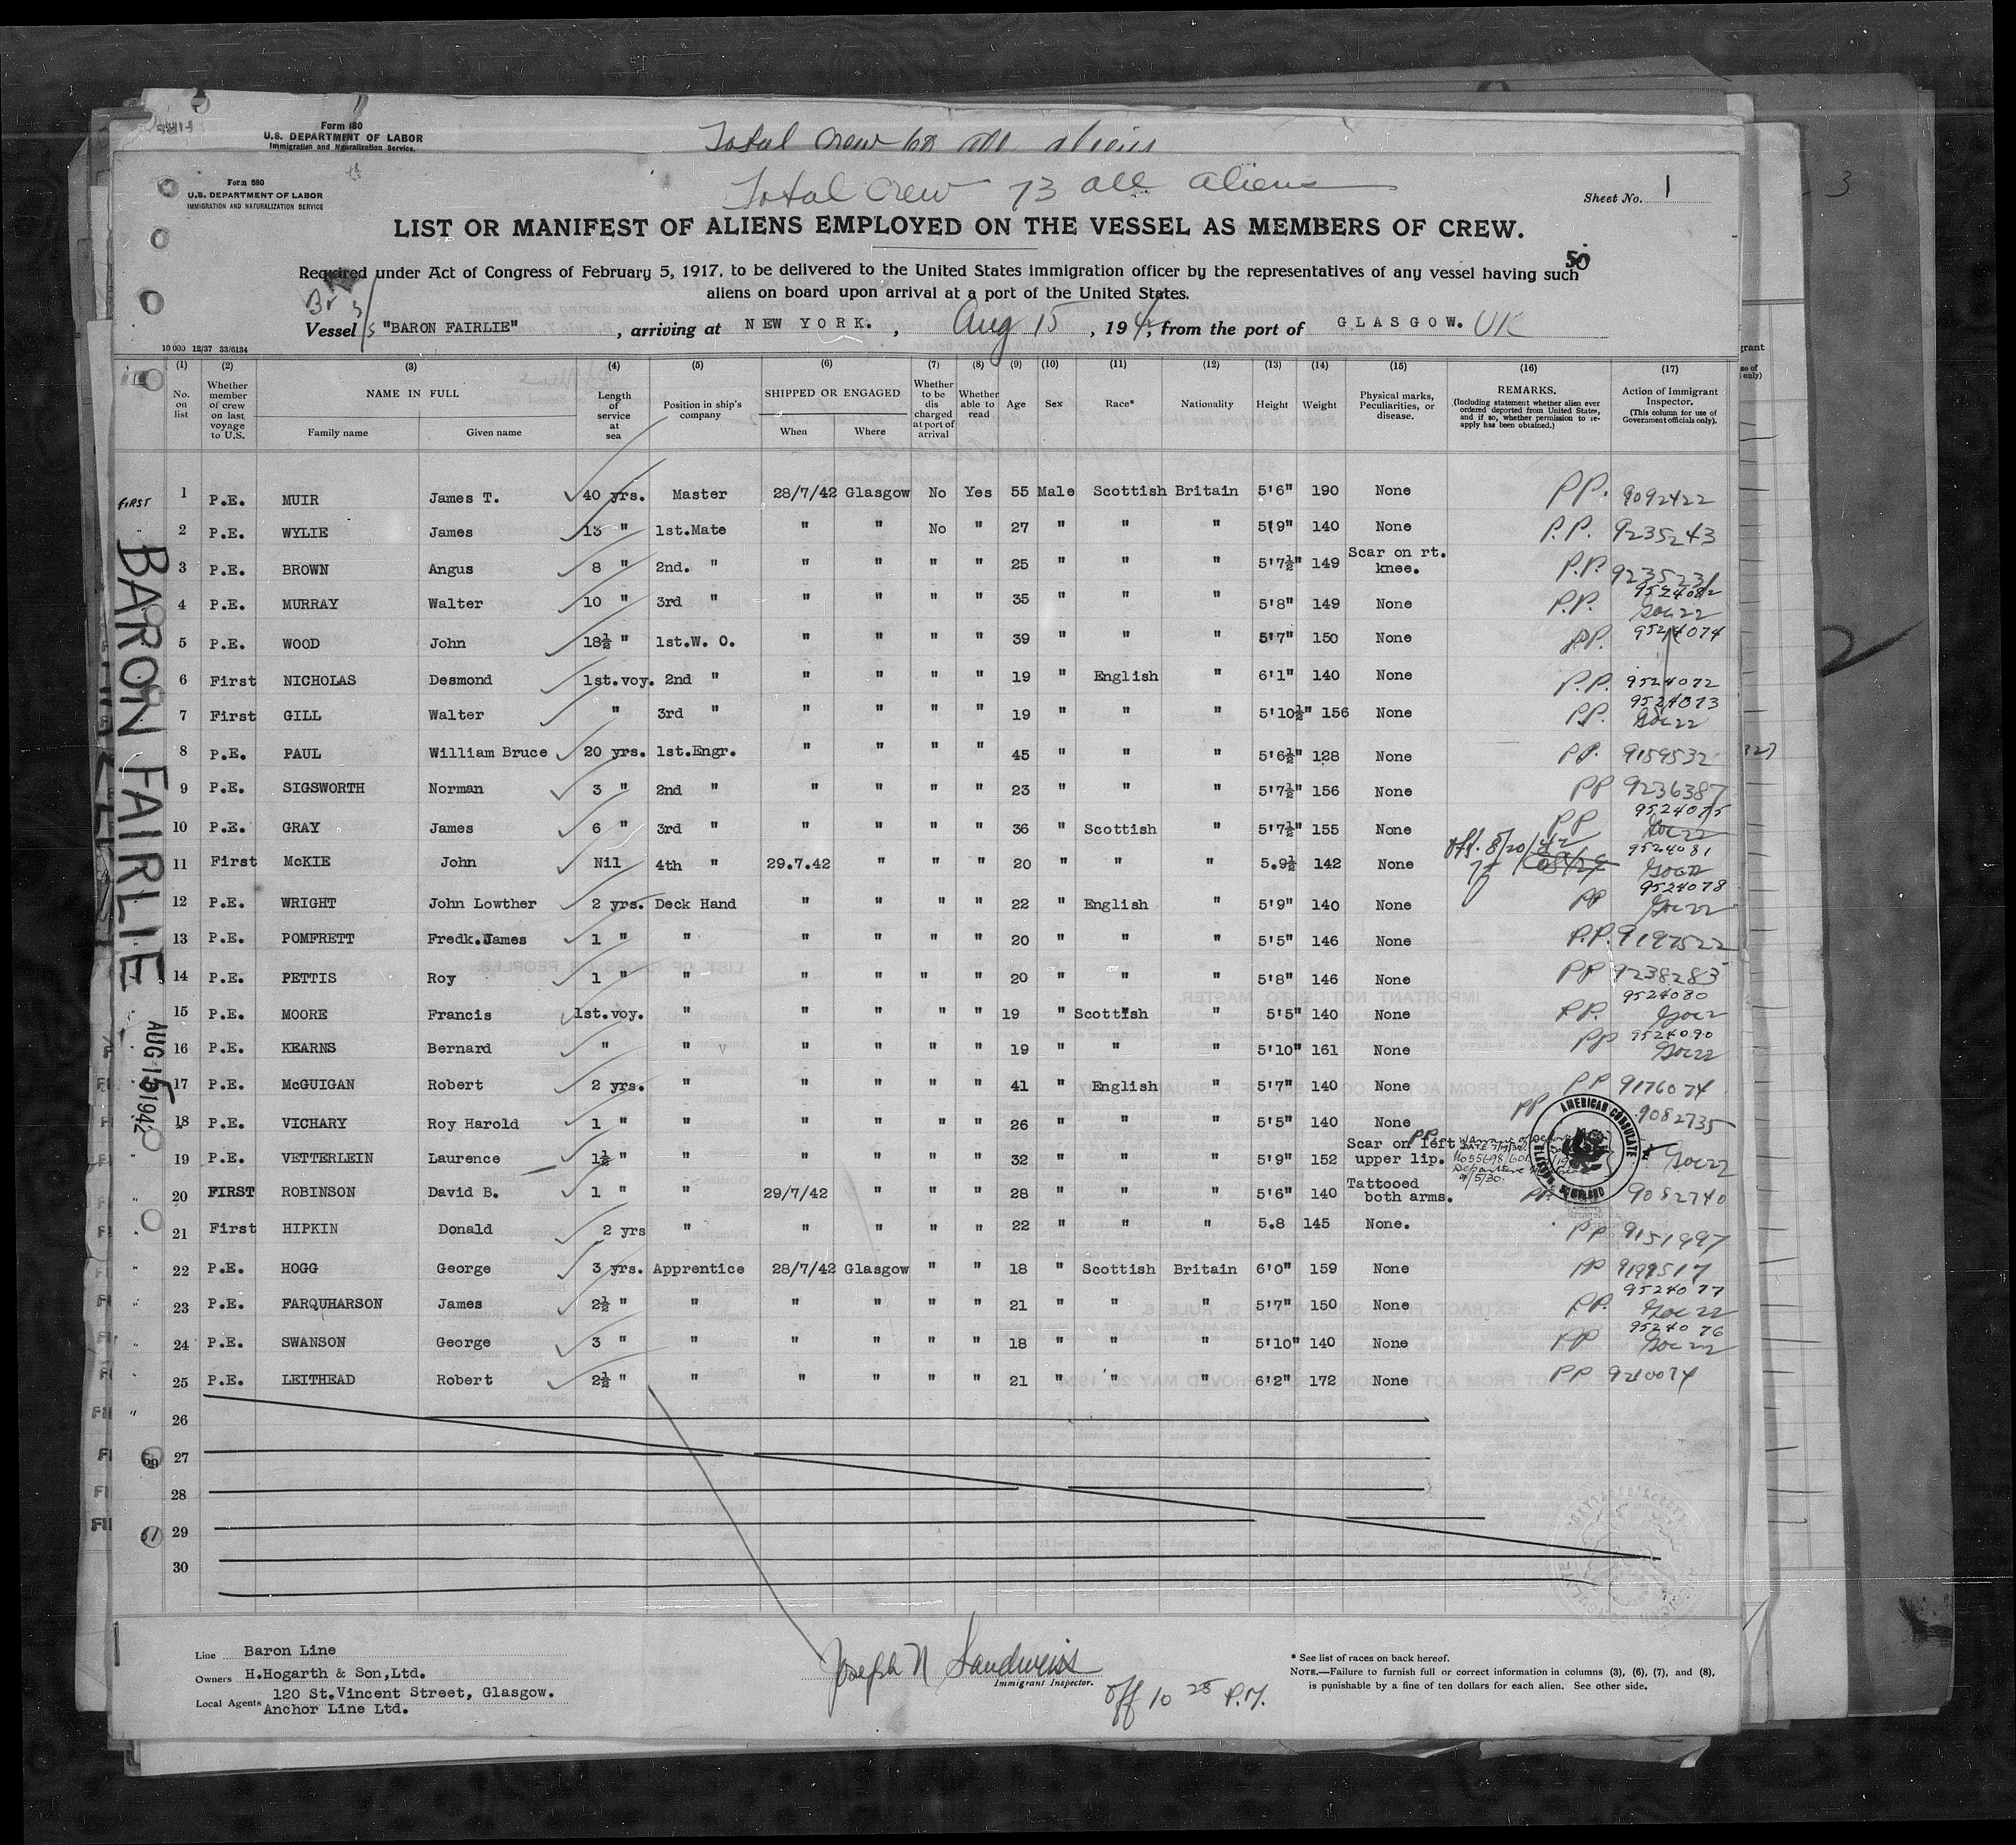 Form 680
U.S. DEPARTMENT OF LABOR
Immigration and Naturalization Service.
Total Crew 68 all aliens
Form 680
U.S. DEPARTMENT OF LABOR
IMMIGRATION AND NATURALIZATION SERVICE
Total Crew 73 all aliens
Sheet No. 1
LIST OR MANIFEST OF ALIENS EMPLOYED ON THE VESSEL AS MEMBERS OF CREW.
50
Required under Act of Congress of February 5, 1917, to be delivered to the United States immigration officer by the representatives of any vessel having such
aliens on board upon arrival at a port of the United States.
Br S/S
Vessel "BARON FAIRLIE", arriving at NEW YORK., Aug 15, 194, from the port of GLASGOW. UK
10 000 12/37 33/6134
(1) (2) (3) (4) (5) (6) (7) (8) (9) (10) (11) (12) (13) (14) (15) (16) (17)
No. on list
Whether member of crew on last voyage to U.S.
NAME IN FULL
Family name Given name
Length of service at sea
Position in ship's company
SHIPPED OR ENGAGED
When Where
Whether to be dis charged at port of arrival
Whether able to read
Age Sex Race* Nationality Height Weight
Physical marks, Peculiarities, or disease.
REMARKS.
(Including statement whether alien ever ordered deported from United States, and if so, whether permission to re-apply has been obtained.)
Action of Immigrant Inspector.
(This column for use of Government officials only).
FIRST 1 P.E. MUIR James T. 40 yrs. Master 28/7/42 Glasgow No Yes 55 Male Scottish Britain 5'6" 190 None PP. 9092422
2 P.E. WYLIE James 13 " 1st.Mate " " No " 27 " " " 5'9" 140 None P.P. 9235243
3 P.E. BROWN Angus 8 " 2nd. " " " " " 25 " " " 5'7½" 149 Scar on rt. knee. P.P. 9235231
4 P.E. MURRAY Walter 10 " 3rd " " " " " 35 " " " 5'8" 149 None P.P. 9524082
5 P.E. WOOD John 18½ " 1st.W. O. " " " " 39 " " " 5'7" 150 None P.P. 9524074
6 First NICHOLAS Desmond 1st.voy. 2nd " " " " " 19 " English " 6'1" 140 None P.P. 9524072
7 First GILL Walter " 3rd " " " " " 19 " " " 5'10½" 156 None P.P. 9524073
8 P.E. PAUL William Bruce 20 yrs. 1st.Engr. " " " " 45 " " " 5'6½" 128 None PP. 9159532
9 P.E. SIGSWORTH Norman 3 " 2nd " " " " " 23 " " " 5'7½" 156 None PP 9236387
10 P.E. GRAY James 6 " 3rd " " " " " 36 " Scottish " 5'7½" 155 None PP 9524075
11 First McKIE John Nil 4th " 29.7.42 " " " 20 " " " 5.9½ 142 None off. 8/20/42 9524081
12 P.E. WRIGHT John Lowther 2 yrs. Deck Hand " " " " 22 " English " 5'9" 140 None PP 9524078
13 P.E. POMFRETT Fredk.James 1 " " " " " " 20 " " " 5'5" 146 None P.P. 9197522
14 P.E. PETTIS Roy 1 " " " " " " 20 " " " 5'8" 146 None PP 9238283
15 P.E. MOORE Francis 1st.voy. " " " " " 19 " Scottish " 5'5" 140 None P.P. 9524080
16 P.E. KEARNS Bernard " " " " " " 19 " " " 5'10" 161 None PP 9524090
17 P.E. McGUIGAN Robert 2 yrs. " " " " " 41 " English " 5'7" 140 None PP 9176074
18 P.E. VICHARY Roy Harold 1 " " " " " " 26 " " " 5'5" 140 None PP 9082735
19 P.E. VETTERLEIN Laurence 1½ " " " " " " 32 " " " 5'9" 152 Scar on left upper lip. PP.
20 FIRST ROBINSON David B. 1 " " 29/7/42 " " " 28 " " " 5'6" 140 Tattooed both arms. PP. 9082740
21 First HIPKIN Donald 2 yrs " " " " " 22 " " " 5.8 145 None. PP 9151497
22 P.E. HOGG George 3 yrs. Apprentice 28/7/42 Glasgow " " 18 " Scottish Britain 6'0" 159 None PP 9199517
23 P.E. FARQUHARSON James 2½ " " " " " " 21 " " " 5'7" 150 None P.P. 9524077
24 P.E. SWANSON George 3 " " " " " " 18 " " " 5'10" 140 None PP 9524076
25 P.E. LEITHEAD Robert 2½ " " " " " " 21 " " " 6'2" 172 None PP 9210074
26
27
28
29
30
AMERICAN CONSULATE
BARON FAIRLIE
AUG 15 1942
61
Line Baron Line
Owners H.Hogarth & Son,Ltd.
120 St.Vincent Street, Glasgow.
Local Agents Anchor Line Ltd.
Joseph N Sandweiss
Immigrant Inspector.
off 10 25 P.M.
* See list of races on back hereof.
NOTE.—Failure to furnish full or correct information in columns (3), (6), (7), and (8),
is punishable by a fine of ten dollars for each alien. See other side.